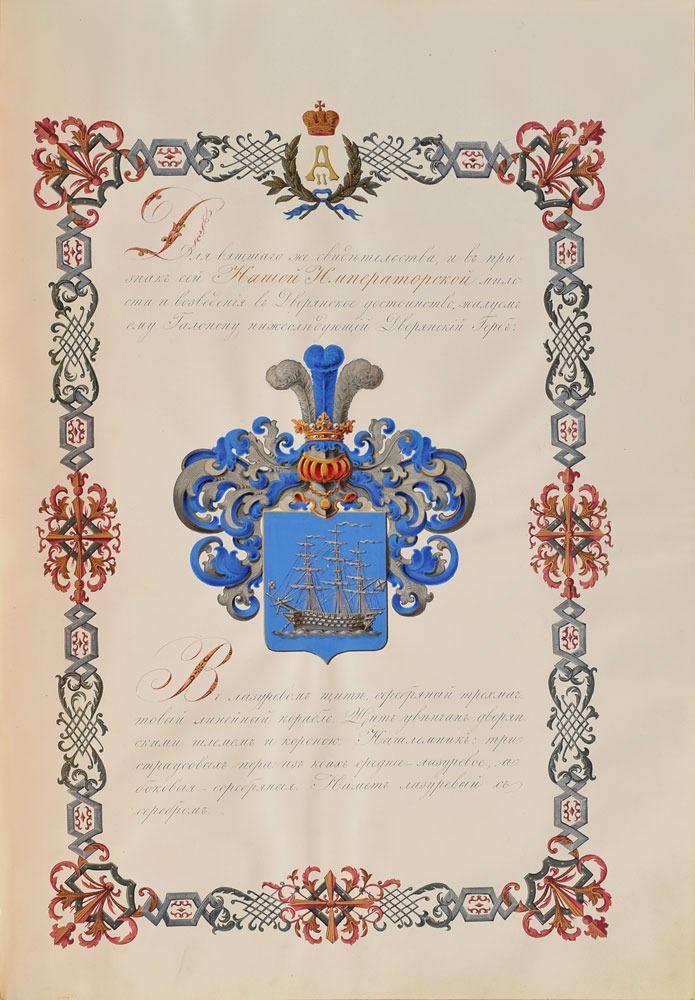 А
II
Для вящшаго же свидѣтельства, и въ при-
знакъ сей Нашей Императорской мило-
сти и возведенія въ Дворянское достоинство, жалуемъ
ему Галонену нижеслѣдующій Дворянскій Гербъ:
Въ лазуревомъ щитѣ, серебряный трехмач-
товый линейный корабль. Щитъ увѣнчанъ дворян-
скими шлемомъ и короною. Нашлемникъ: три
страусовыхъ пера изъ коихъ среднее - лазуревое, а
боковыя - серебряныя. Наметъ лазуревый съ
серебромъ.